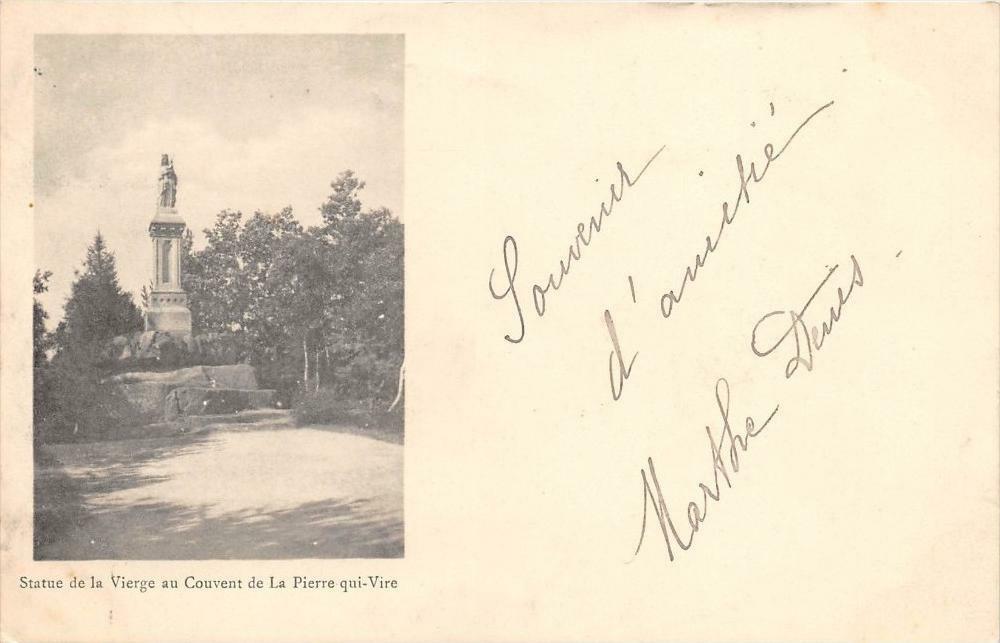 Statue de la Vierge au Couvent de La Pierre qui-Vire
Souvenir
d'amitié
Marthe Denis